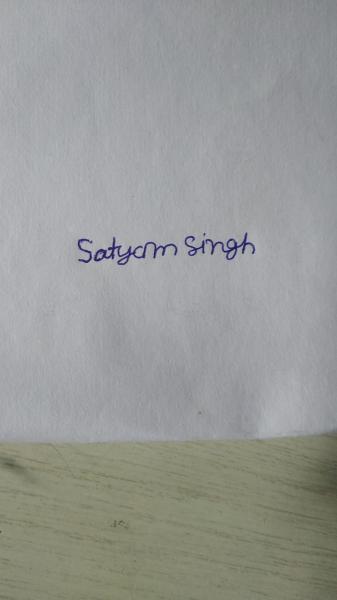 Satyam Singh